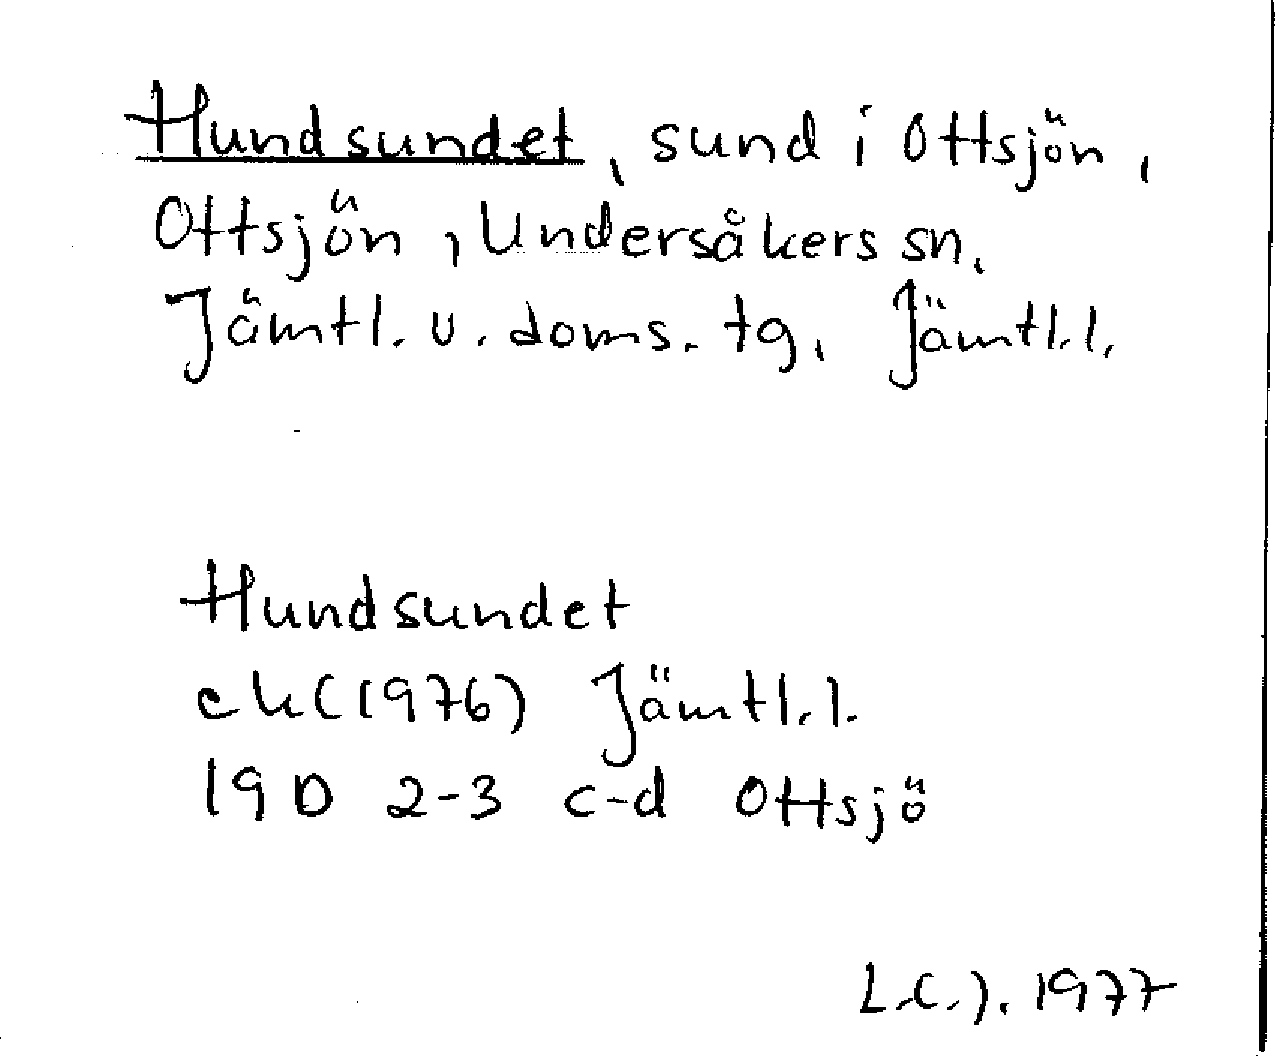 Hundsundet, sund i Ottsjön,
Ottsjön, Undersåkers sn,
Jämtl. v. doms. tg, Jämtl.l,
Hundsundet
ek (1976) Jämtl.l.
19 D 2-3 c-d Ottsjö
L.C.J. 1977